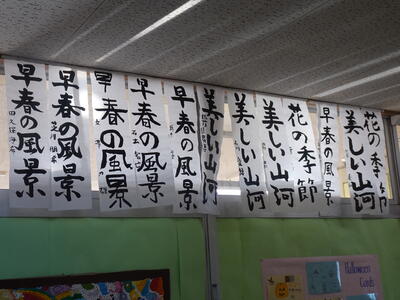 早春の風景
早春の風景
早春の風景
早春の風景
早春の風景
美しい山河
美しい山河
美しい山河
花の季節
早春の風景
美しい山河
花の季節
Halloween
Cards